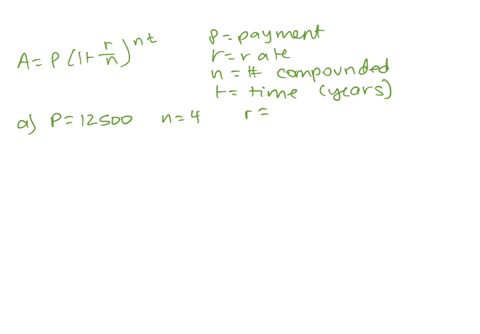 A = P(1+r/n)^nt
P = payment
r = rate
n = # compounded
t = time (years)
a) P = 12500 n = 4 r =